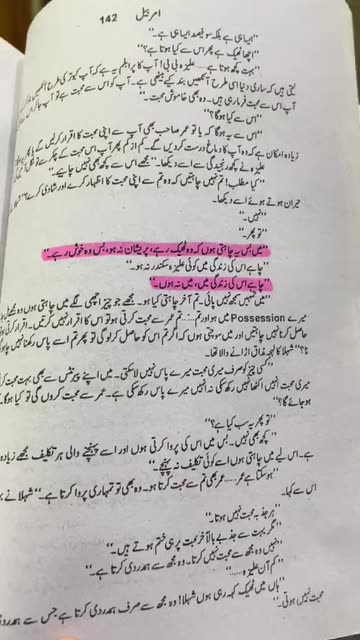 142 امربیل
"ایسا ہی ہے بلکہ سو فیصد ایسا ہی ہے۔"
"اچھا ٹھیک ہے پھر اس سے کیا ہوتا ہے؟"
"بہت کچھ ہوتا ہے۔۔۔۔۔ علیزہ بی بی! آپ کا پرابلم یہ ہے کہ آپ کبوتر کی طرح آنکھیں
لیتی ہیں کہ ساری دنیا اسی طرح آنکھیں بند کیے بیٹھی ہے۔ آپ کو اس سے محبت ہے تو آپ
آپ اس سے محبت فرما رہی ہیں۔ وہ بھی خاموش محبت۔"
"اس سے کیا ہوگا؟"
"اس سے یہ ہوگا کہ یا تو عمر صاحب بھی آپ سے اپنی محبت کا اقرار کر لیں گے یا پھر
زیادہ امکان ہے کہ وہ آپ کا دماغ درست کر دیں گے۔ کم از کم پھر آپ اس محبت کے چکر سے تو نکل
علیزہ نے کچھ رنجیدگی سے اسے دیکھا۔ "مجھے اس سے کچھ بھی نہیں چاہیے۔"
"کیا مطلب! تم نہیں چاہتیں کہ وہ تم سے اپنی محبت کا اظہار کرے اور شادی کرے؟"
حیران ہوتے ہوئے اسے دیکھا۔
"نہیں۔"
"تو پھر۔"
"میں بس یہ چاہتی ہوں کہ وہ ٹھیک رہے، پریشان نہ ہو، بس وہ خوش رہے۔"
"چاہے اس کی زندگی میں کوئی علیزہ سکندر نہ ہو۔"
"چاہے اس کی زندگی میں، میں نہ ہوں۔"
"میں تمہیں سمجھ نہیں پائی۔ تم آخر چاہتی کیا ہو۔ مجھے جو چیز اچھی لگے میں چاہتی ہوں وہ
میرے Possession میں ہو اور تم۔۔۔۔ تم عمر سے محبت کرتی ہو تو اس کا اقرار نہیں کرتیں۔ اقرار
حاصل کرنا نہیں چاہتیں اور میں سوچتی ہوں کہ اگر تم اس کو حاصل کر لو گی تو پھر تم اسے پاس رکھنا نہیں
نا؟" شہلا کا لہجہ مذاق اڑانے والا تھا۔
"کسی چیز کو صرف میری محبت میرے پاس نہیں لا سکتی۔ میں اپنے پیرنٹس سے بھی بہت محبت
میری محبت انہیں اکٹھا نہیں رکھ سکی نہ انہیں میرے پاس رکھ سکی ہے۔ عمر سے محبت کروں گی تو کیا
ہو جائے گا؟"
"تو پھر یہ سب کیا ہے؟"
"کچھ بھی نہیں۔ بس میں اس کی پروا کرتی ہوں اور اسے پہنچنے والی ہر تکلیف مجھے زیادہ
ہے۔ اس لیے میں چاہتی ہوں اسے کوئی تکلیف نہ پہنچے۔"
"ہو سکتا ہے عمر۔۔۔۔۔ عمر بھی تم سے محبت کرتا ہو۔ وہ بھی تو تمہاری پروا کرتا ہے۔" شہلا نے
اس سے کہا۔
"ہر جذبہ محبت نہیں ہوتا۔"
"مگر بہت سے جذبے بالآخر محبت پر ہی ختم ہوتے ہیں۔"
"نہیں وہ مجھ سے محبت نہیں کرتا۔ وہ مجھ سے ہمدردی کرتا ہے۔"
"کم آن علیزہ۔۔۔۔"
"ہاں میں ٹھیک کہہ رہی ہوں شہلا! وہ مجھ سے صرف ہمدردی کرتا ہے جس سے ہمدردی
محبت نہیں ہوتی۔"